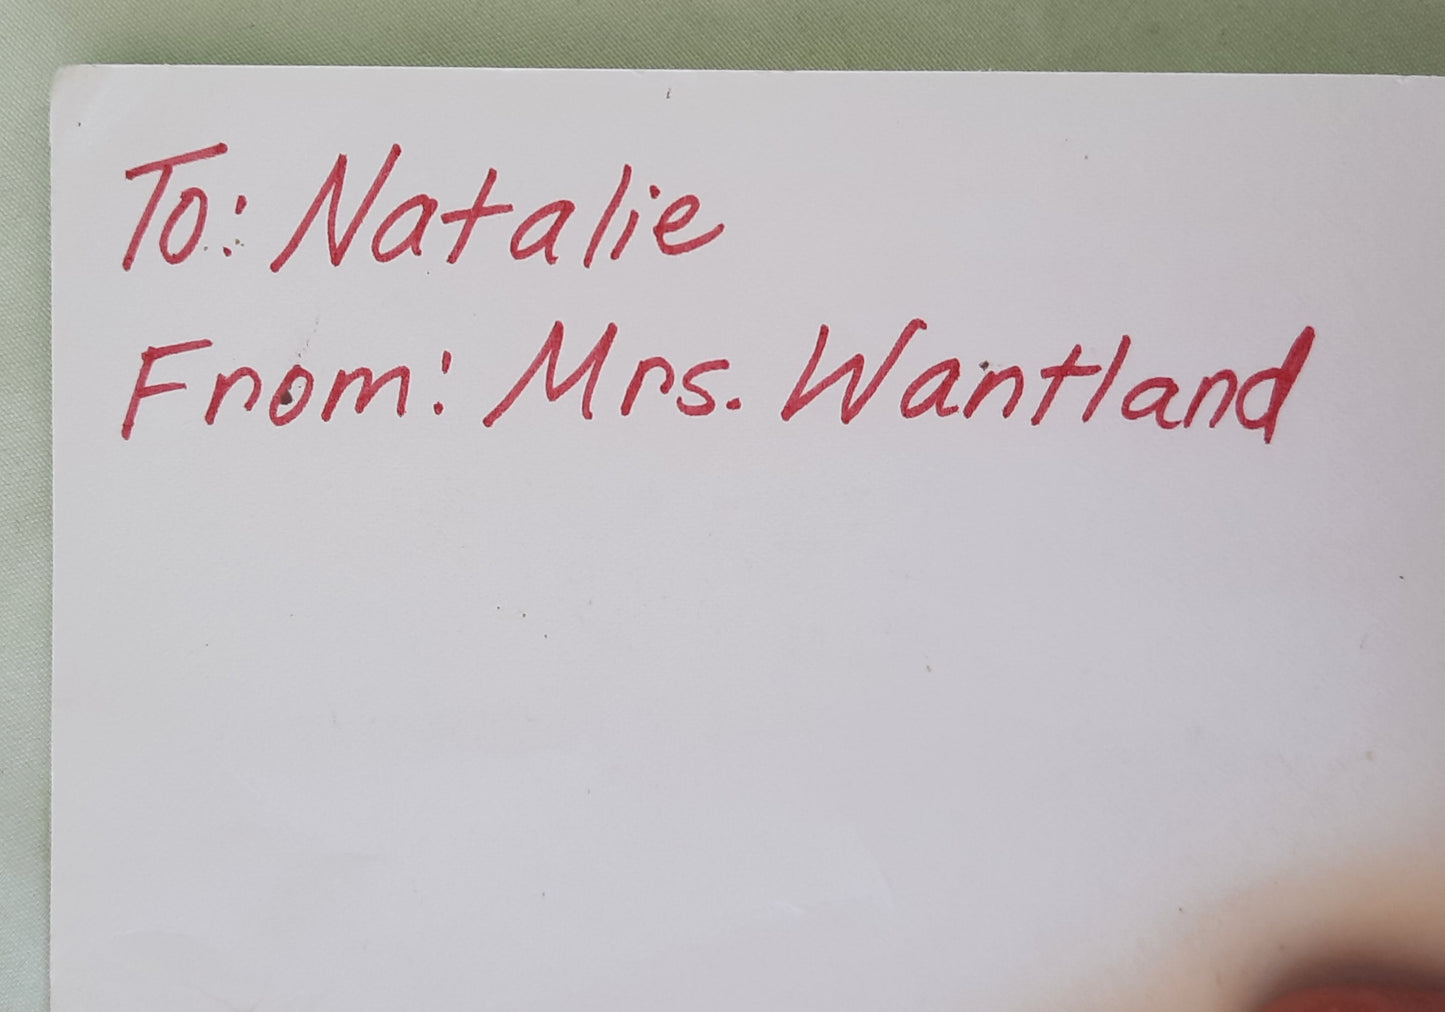 To: Natalie
From: Mrs. Wantland